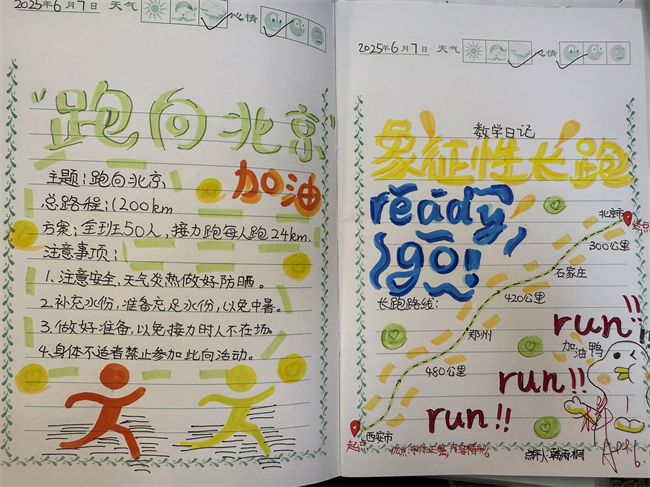 2025年6月7日 天气 心情
"跑向北京"
加油
主题：跑向北京
总路程：1200km
方案：全班50人，接力跑每人跑24km.
注意事项：
1.注意安全，天气炎热做好防晒。
2.补充水份，准备充足水份，以免中暑。
3.做好准备，以免接力时人不在场。
4.身体不适者禁止参加此向活动。
2025年6月7日 天气 心情
数学日记
象征性长跑
ready,
go!
北京市
终点
300公里
石家庄
420公里
长跑路线：
郑州
480公里
西安市
起点
run!!
加油鸭
run!!
run!!
优点：字体工整,内容
点评人: